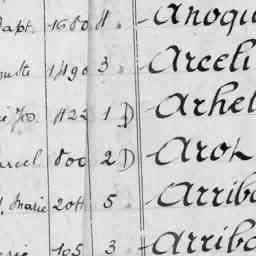 apt. 1680 Anoqu
1490 3. Arceli
1422 1 D Arhel
arcel 800 2 D Arot
Marie 2011 5 Arriba
105 3 Arriba